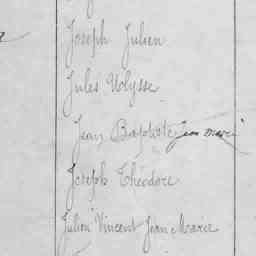 Joseph Julien
Jules Ulysse
Jean Baptiste Jean Marie
Joseph Théodore
Julien Vincent Jean Marie